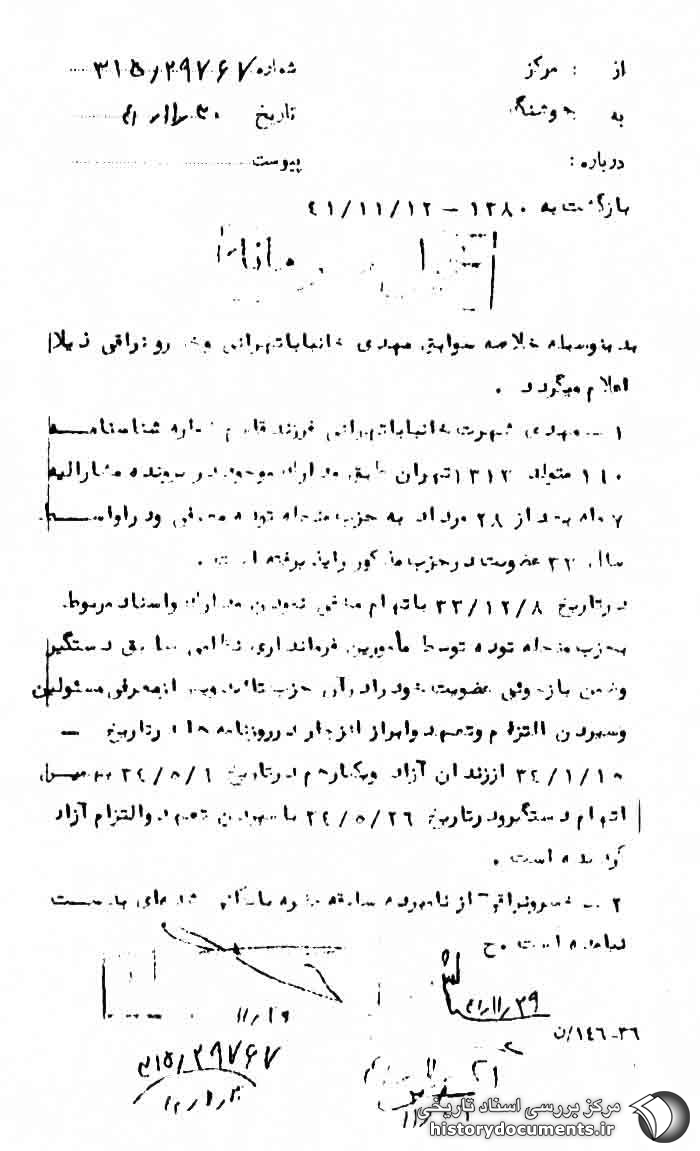 از : مرکز
شماره ۳۱۵/۲۹۷۶۷
به
تاریخ ۴۱/۱۱/۳۰
درباره :
پیوست
بازگشت به ۱۲۸۰ - ۴۱/۱۱/۱۲
بدینوسیله خلاصه سوابق مهدی خانباباتهرانی و خسرو نراقی ذیلا
اعلام میگردد .
۱ - مهدی شهرت خانباباتهرانی فرزند قاسم شماره شناسنامه
۱۱۰ متولد ۱۳۱۳ تهران طبق مدارک موجود در پرونده مشارالیه
۷ ماه بعد از ۲۸ مرداد به حزب منحله توده معرفی و در اواسط
سال ۳۳ عضویت در حزب مذکور را پذیرفته است .
در تاریخ ۳۳/۱۲/۸ باتهام مخفی نمودن مدارک واسناد مربوط
بحزب منحله توده توسط مأمورین فرمانداری نظامی سابق دستگیر
وضمن بازجوئی عضویت خود را در آن حزب تائید و پس از معرفی مسئولین
وسپردن التزام وتعهد وابراز انزجار در روزنامه ها در تاریخ -
۳۴/۱/۱۵ از زندان آزاد ویکبار هم در تاریخ ۳۴/۵/۶ به همین
اتهام دستگیر و در تاریخ ۳۴/۵/۲۶ با سپردن تعهد والتزام آزاد
گردیده است .
۲ - خسرو نراقی از نامبرده سابقه مضره بایگانی شده ای بدست
نیامده است . ح
۴۱/۱۱/۲۹
۱۱/۲۹
۳۶-۱۴۶/ن
۳۱۵/۲۹۷۶۷
مرکز بررسی اسناد تاریخی
historydocuments.ir